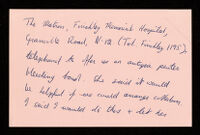 The Matron, Finchley Memorial Hospital,
Granville Road, N.12 (Tel. Finchley 1195),
telephoned to offer us an antique
bleeding bowl. She said it would
be helpful if we could arrange collection.
I said I would do this & let her